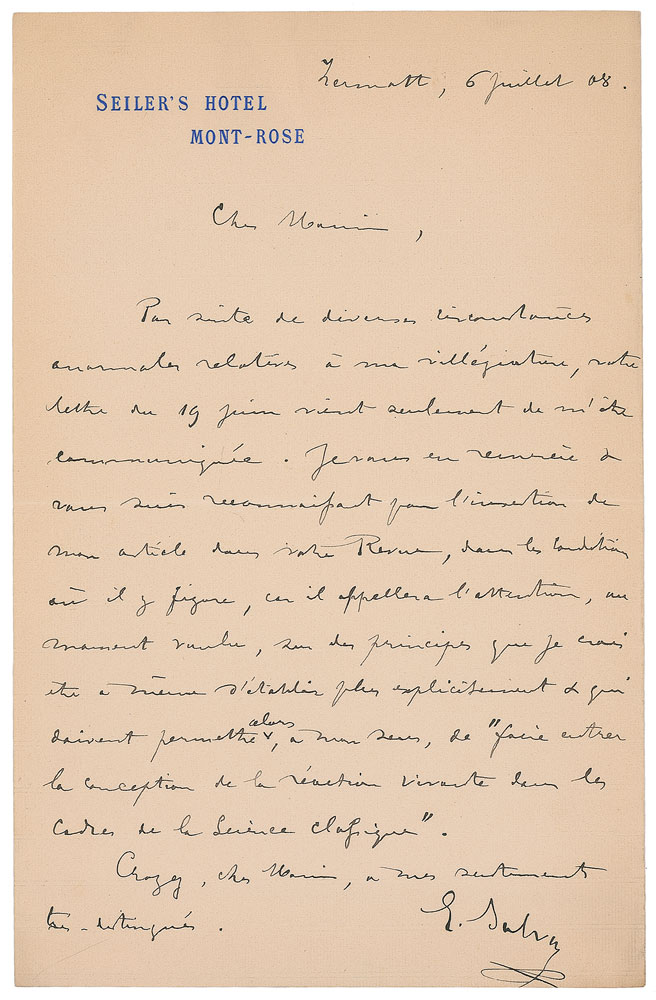 Zermatt, 6 Juillet 08.
SEILER'S HOTEL
MONT-ROSE
Cher Monsieur,
Par suite de diverses circonstances
anormales relatives à ma villégiature, votre
lettre du 19 juin vient seulement de m'être
communiquée. Je vous en remercie &
vous suis reconnaissant pour l'insertion de
mon article dans votre Revue, dans les conditions
où il y figure, car il appellera l'attention, au
moment voulu, sur des principes que je crois
être à même d'établir plus explicitement & qui
doivent permettre alors, à mon sens, de "faire entrer
la conception de la réaction vivante dans les
cadres de la Science classique".
Croyez, cher Monsieur, à mes sentiments
très-distingués.
E. Solvay